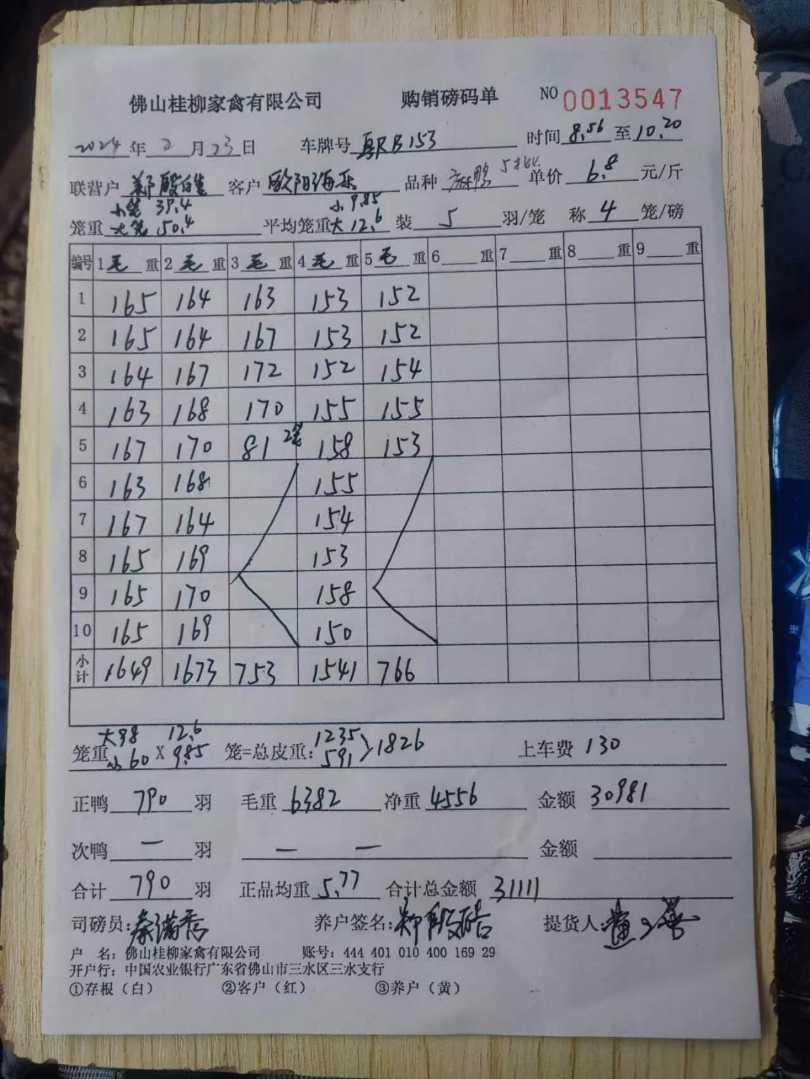 佛山桂柳家禽有限公司 购销磅码单 NO 0013547
2024 年 2 月 23 日 车牌号 RB153 时间 8.56 至 10.20
联营户 郑 客户 欧阳海乐 品种 麻鸭 单价 6.8 元/斤
小笼 39.4 小 9.85
笼重 大笼 50.4 平均笼重 大 12.6 装 5 羽/笼 称 4 笼/磅
编号 1 毛 重 2 毛 重 3 毛 重 4 毛 重 5 毛 重 6 重 7 重 8 重 9 重
1 165 164 163 153 152
2 165 164 167 153 152
3 164 167 172 152 154
4 163 168 170 155 155
5 167 170 81 2笼 158 153
6 163 168 155
7 167 164 154
8 165 169 153
9 165 170 158
10 165 169 150
小计 1649 1673 753 1541 766
大98 12.6 1235
笼重 小60 X 9.85 笼=总皮重: 591 1826 上车费 130
正鸭 790 羽 毛重 6382 净重 4556 金额 30981
次鸭 — 羽 — — 金额
合计 790 羽 正品均重 5.77 合计总金额 31111
司磅员: 秦满秀 养户签名: 郑 提货人:
户 名: 佛山桂柳家禽有限公司 账号: 444 401 010 400 169 29
开户行: 中国农业银行广东省佛山市三水区三水支行
①存根(白) ②客户(红) ③养户(黄)